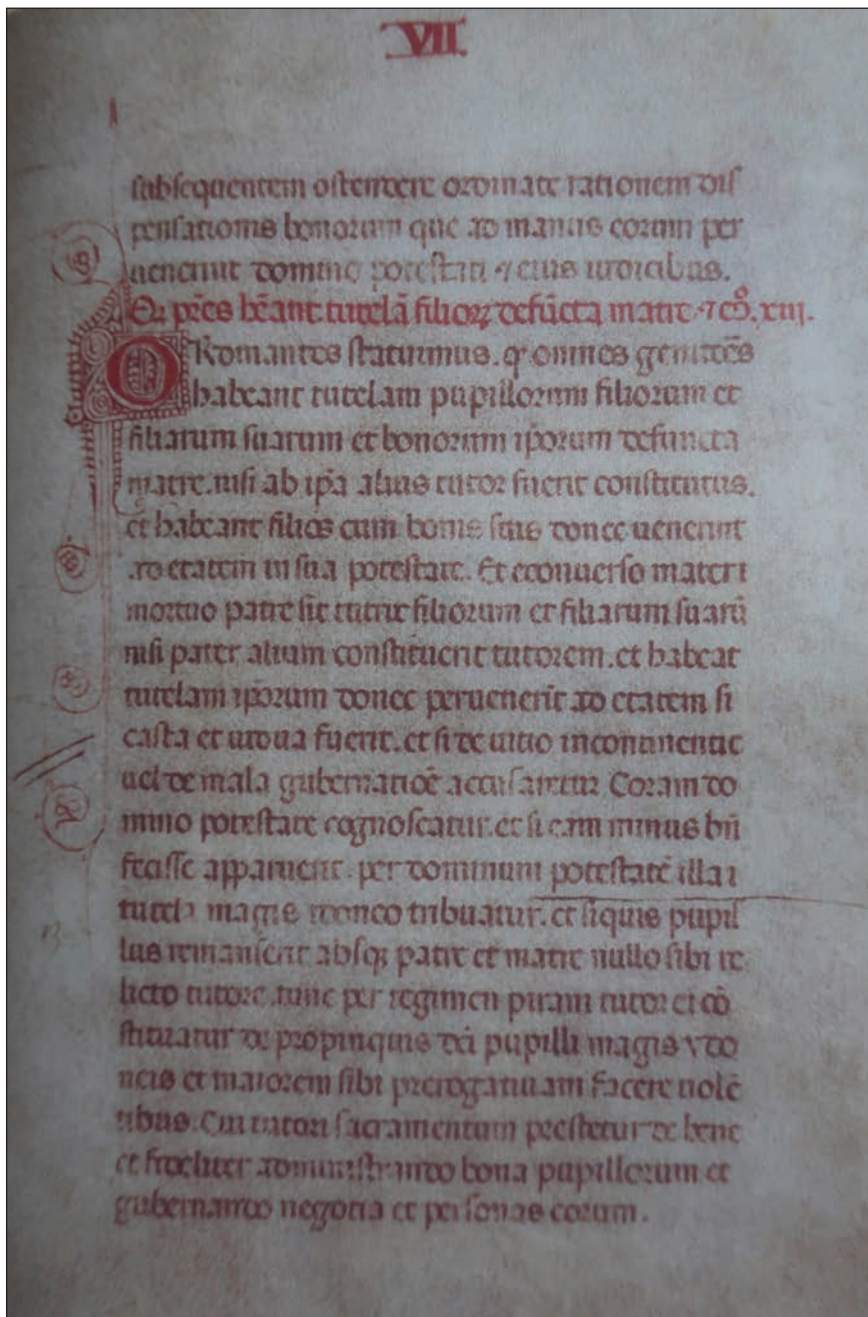 VII
subsequentem ostendere ordinate rationem dis
pensationis bonorum que ad manus eorum per
uenerint domino potestati ⁊ eius iudicibus.
Qd̵ pr̄es hēant tutelā filioꝝ defūcta matre. ⁊ cō. xiii.
Ordinantes statuimus. qđ omnes genitoēs
habeant tutelam pupillorum filiorum et
filiarum suarum et bonorum ip̄orum defuncta
matre. nisi ab ip̄a alius tutor fuerit constitutus.
et habeant filios cum bonis suis donec uenerint
ad etatem in sua potestate. Et econuerso mater
mortuo patre sit tutrix filiorum et filiarum suarū
nisi pater alium constituerit tutorem. et habeat
tutelam ip̄orum donec peruenerīt ad etatem si
casta et uidua fuerit. et si de uitio incontinentie
uel de mala gubernatiōe accusaretur Coram do
mino potestate cognoscatur. et si eam minus bn̄
fecisse apparuerit. per dominum potestatē illa
tutela magis idoneo tribuatur. et siquis pupil
lus remanserit absqꝫ patre et matre nullo sibi re
licto tutore. tunc per regimen tutor et cō
stituatur de propinquis dc̄i pupilli magis ydo
neis et maiorem sibi prerogatiuam facere uolē
tibus. Cui tutori sacramentum prestetur de bene
et fideliter administrando bona pupillorum et
gubernando negotia et personas eorum.